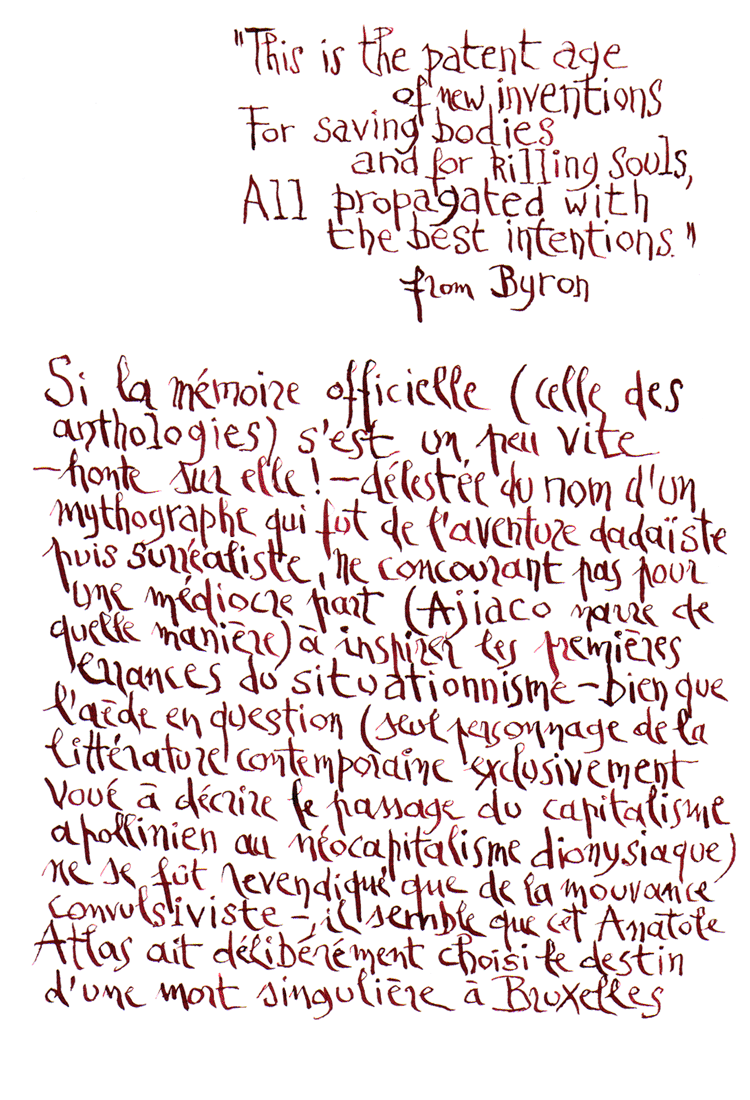 "This is the patent age
of new inventions
For saving bodies
and for killing souls,
All propagated with
the best intentions."
from Byron
Si la mémoire officielle (celle des
anthologies) s'est un peu vite
– honte sur elle! – délestée du nom d'un
mythographe qui fut de l'aventure dadaïste
puis surréaliste, ne concourant pas pour
une médiocre part (Ajiaco narre de
quelle manière) à inspirer les premières
errances du situationnisme – bien que
l'aède en question (seul personnage de la
littérature contemporaine exclusivement
voué à décrire le passage du capitalisme
apollinien au néocapitalisme dionysiaque)
ne se fût revendiqué que de la mouvance
convulsiviste –, il semble que cet Anatole
Atlas ait délibérément choisi le destin
d'une mort singulière à Bruxelles